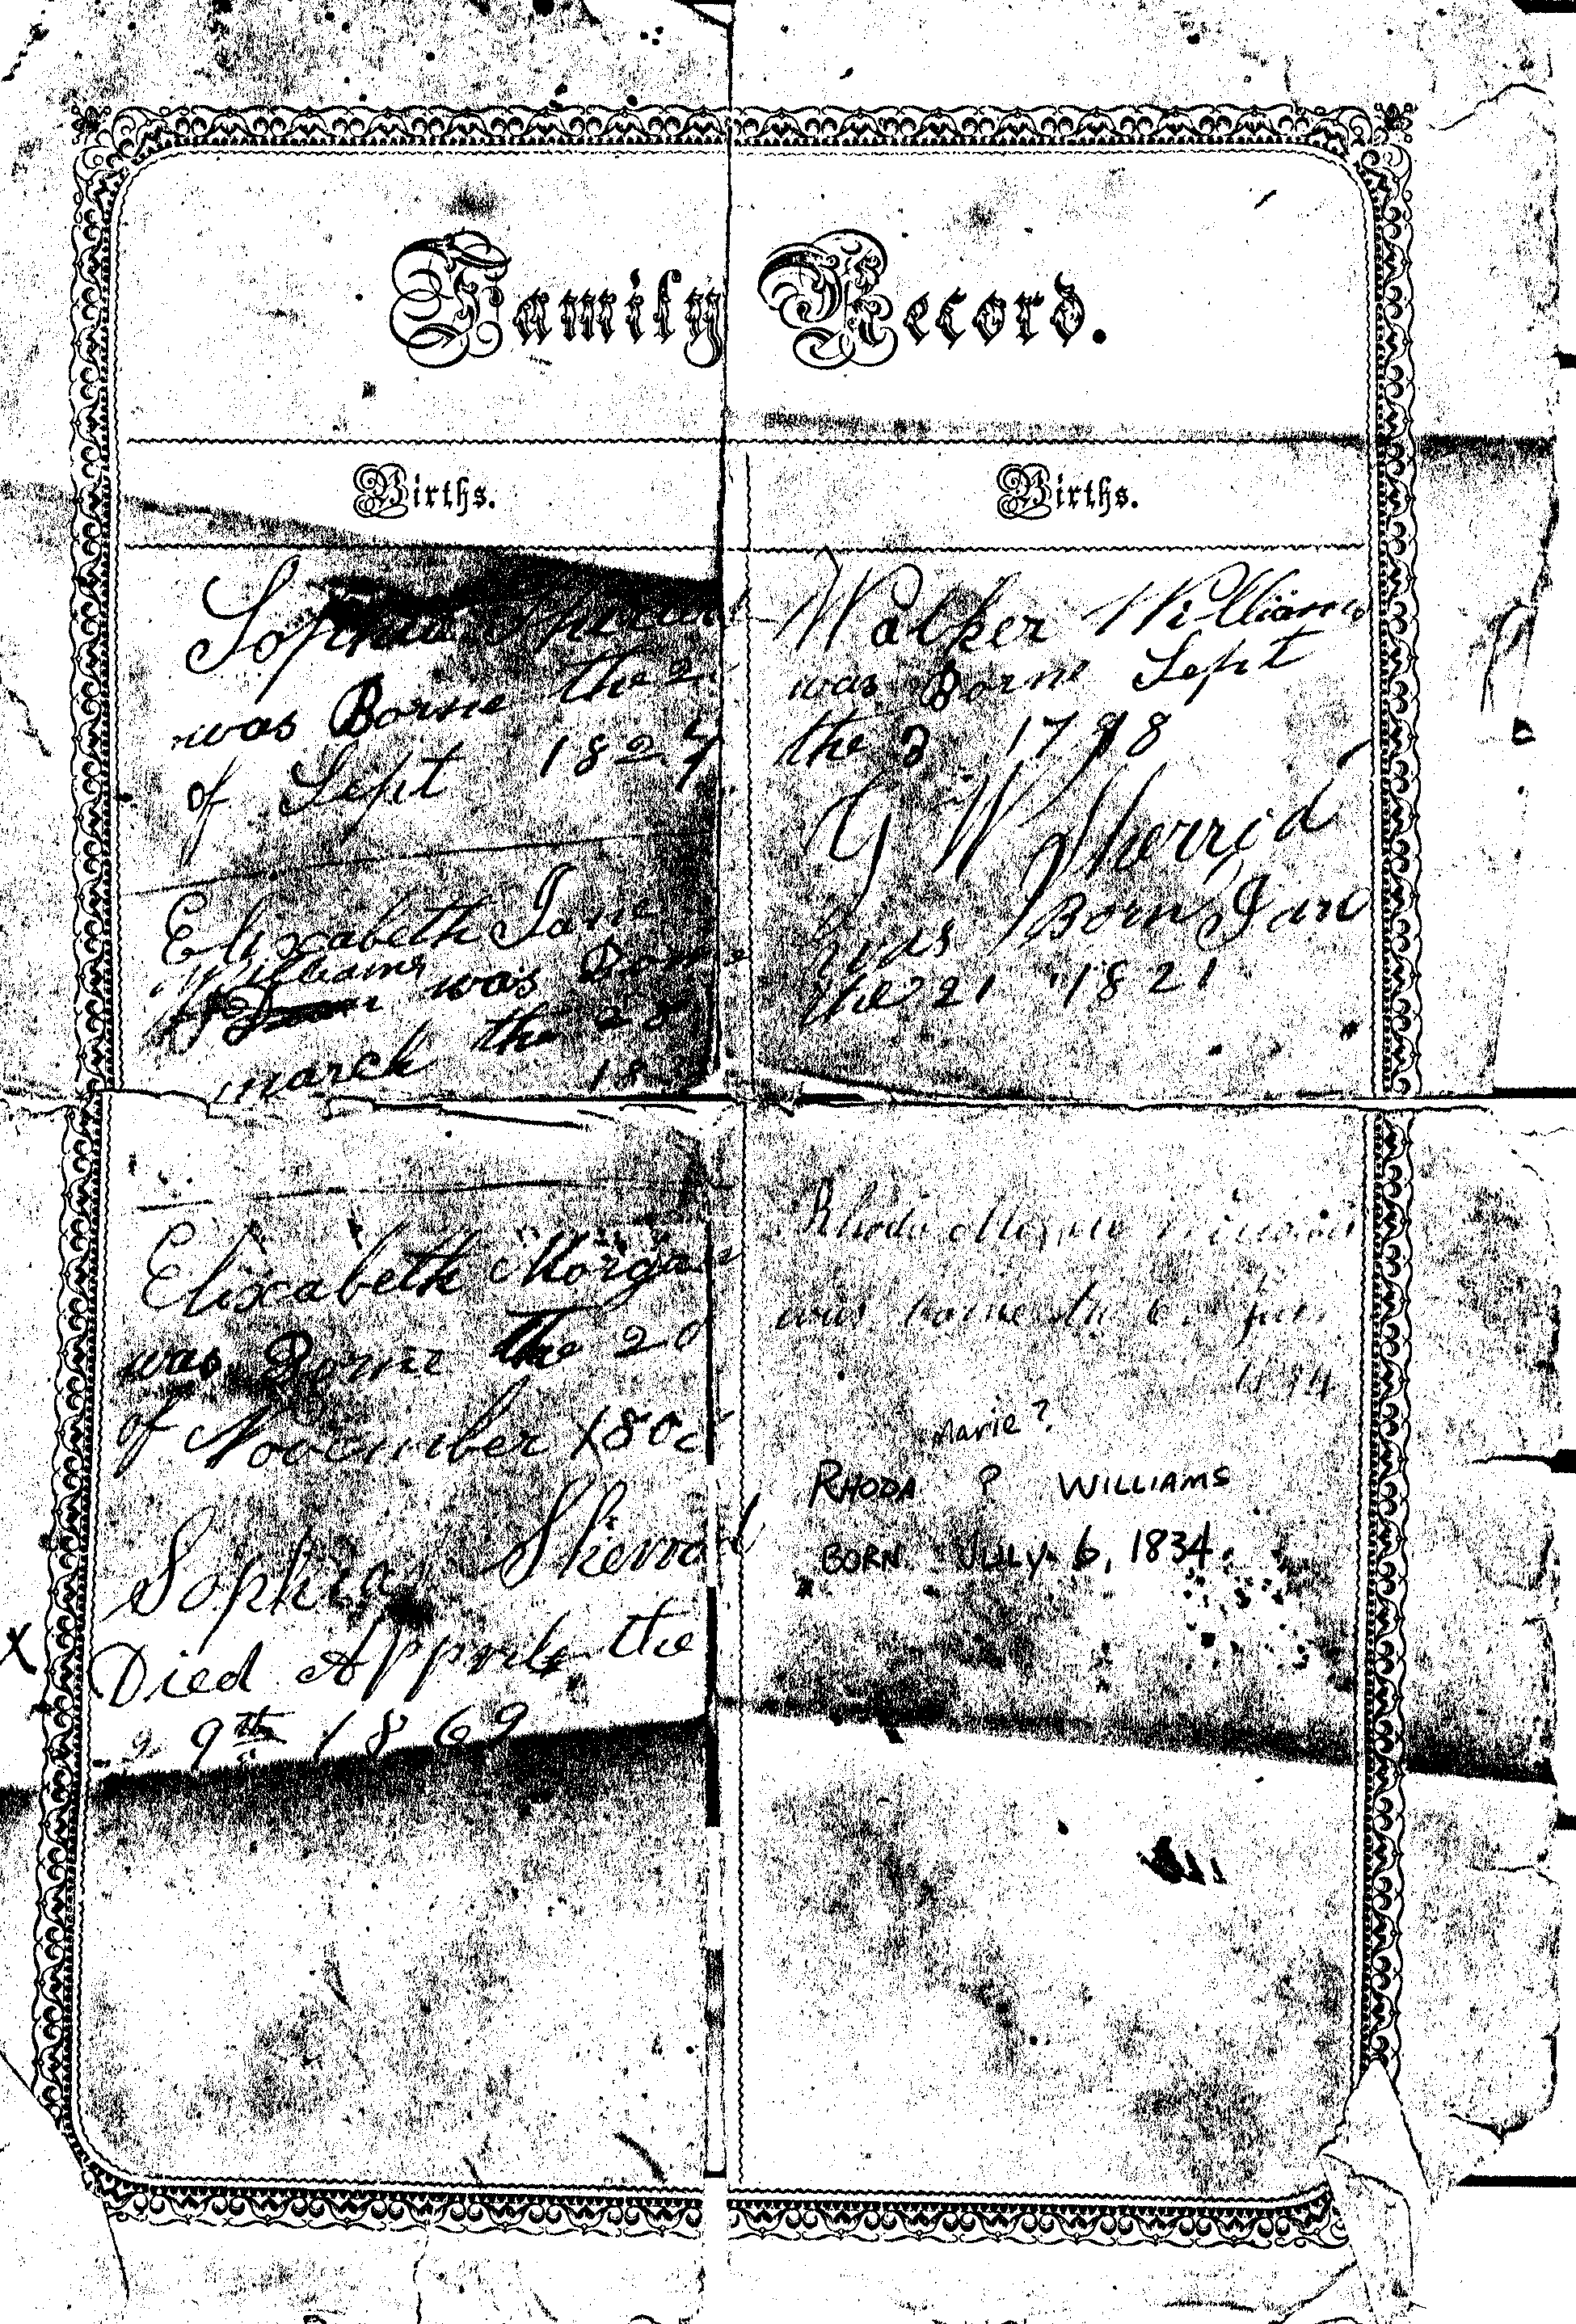 Family Record.
Births.
Sophia Sherard
was Borne the 2
of Sept 1827
Elizabeth Jane
Williams
was Borne
march the 28
18
Elizabeth Morgan
was Borne the 20
of November 180
Sophia Sherrard
Died Apprile the
9th 1869
Births.
Walker Williams
was Borne Sept
the 3 1798
G W Sherrid
was Born Jan
the 21 1821
Rhoda
was borne the 6
Marie?
RHODA ? WILLIAMS
BORN JULY 6, 1834
X